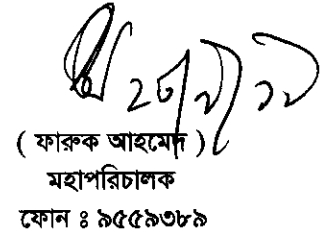 ( ফারুক আহমেদ )
মহাপরিচালক
ফোন ঃ ৯৫৫৯৩৮৯